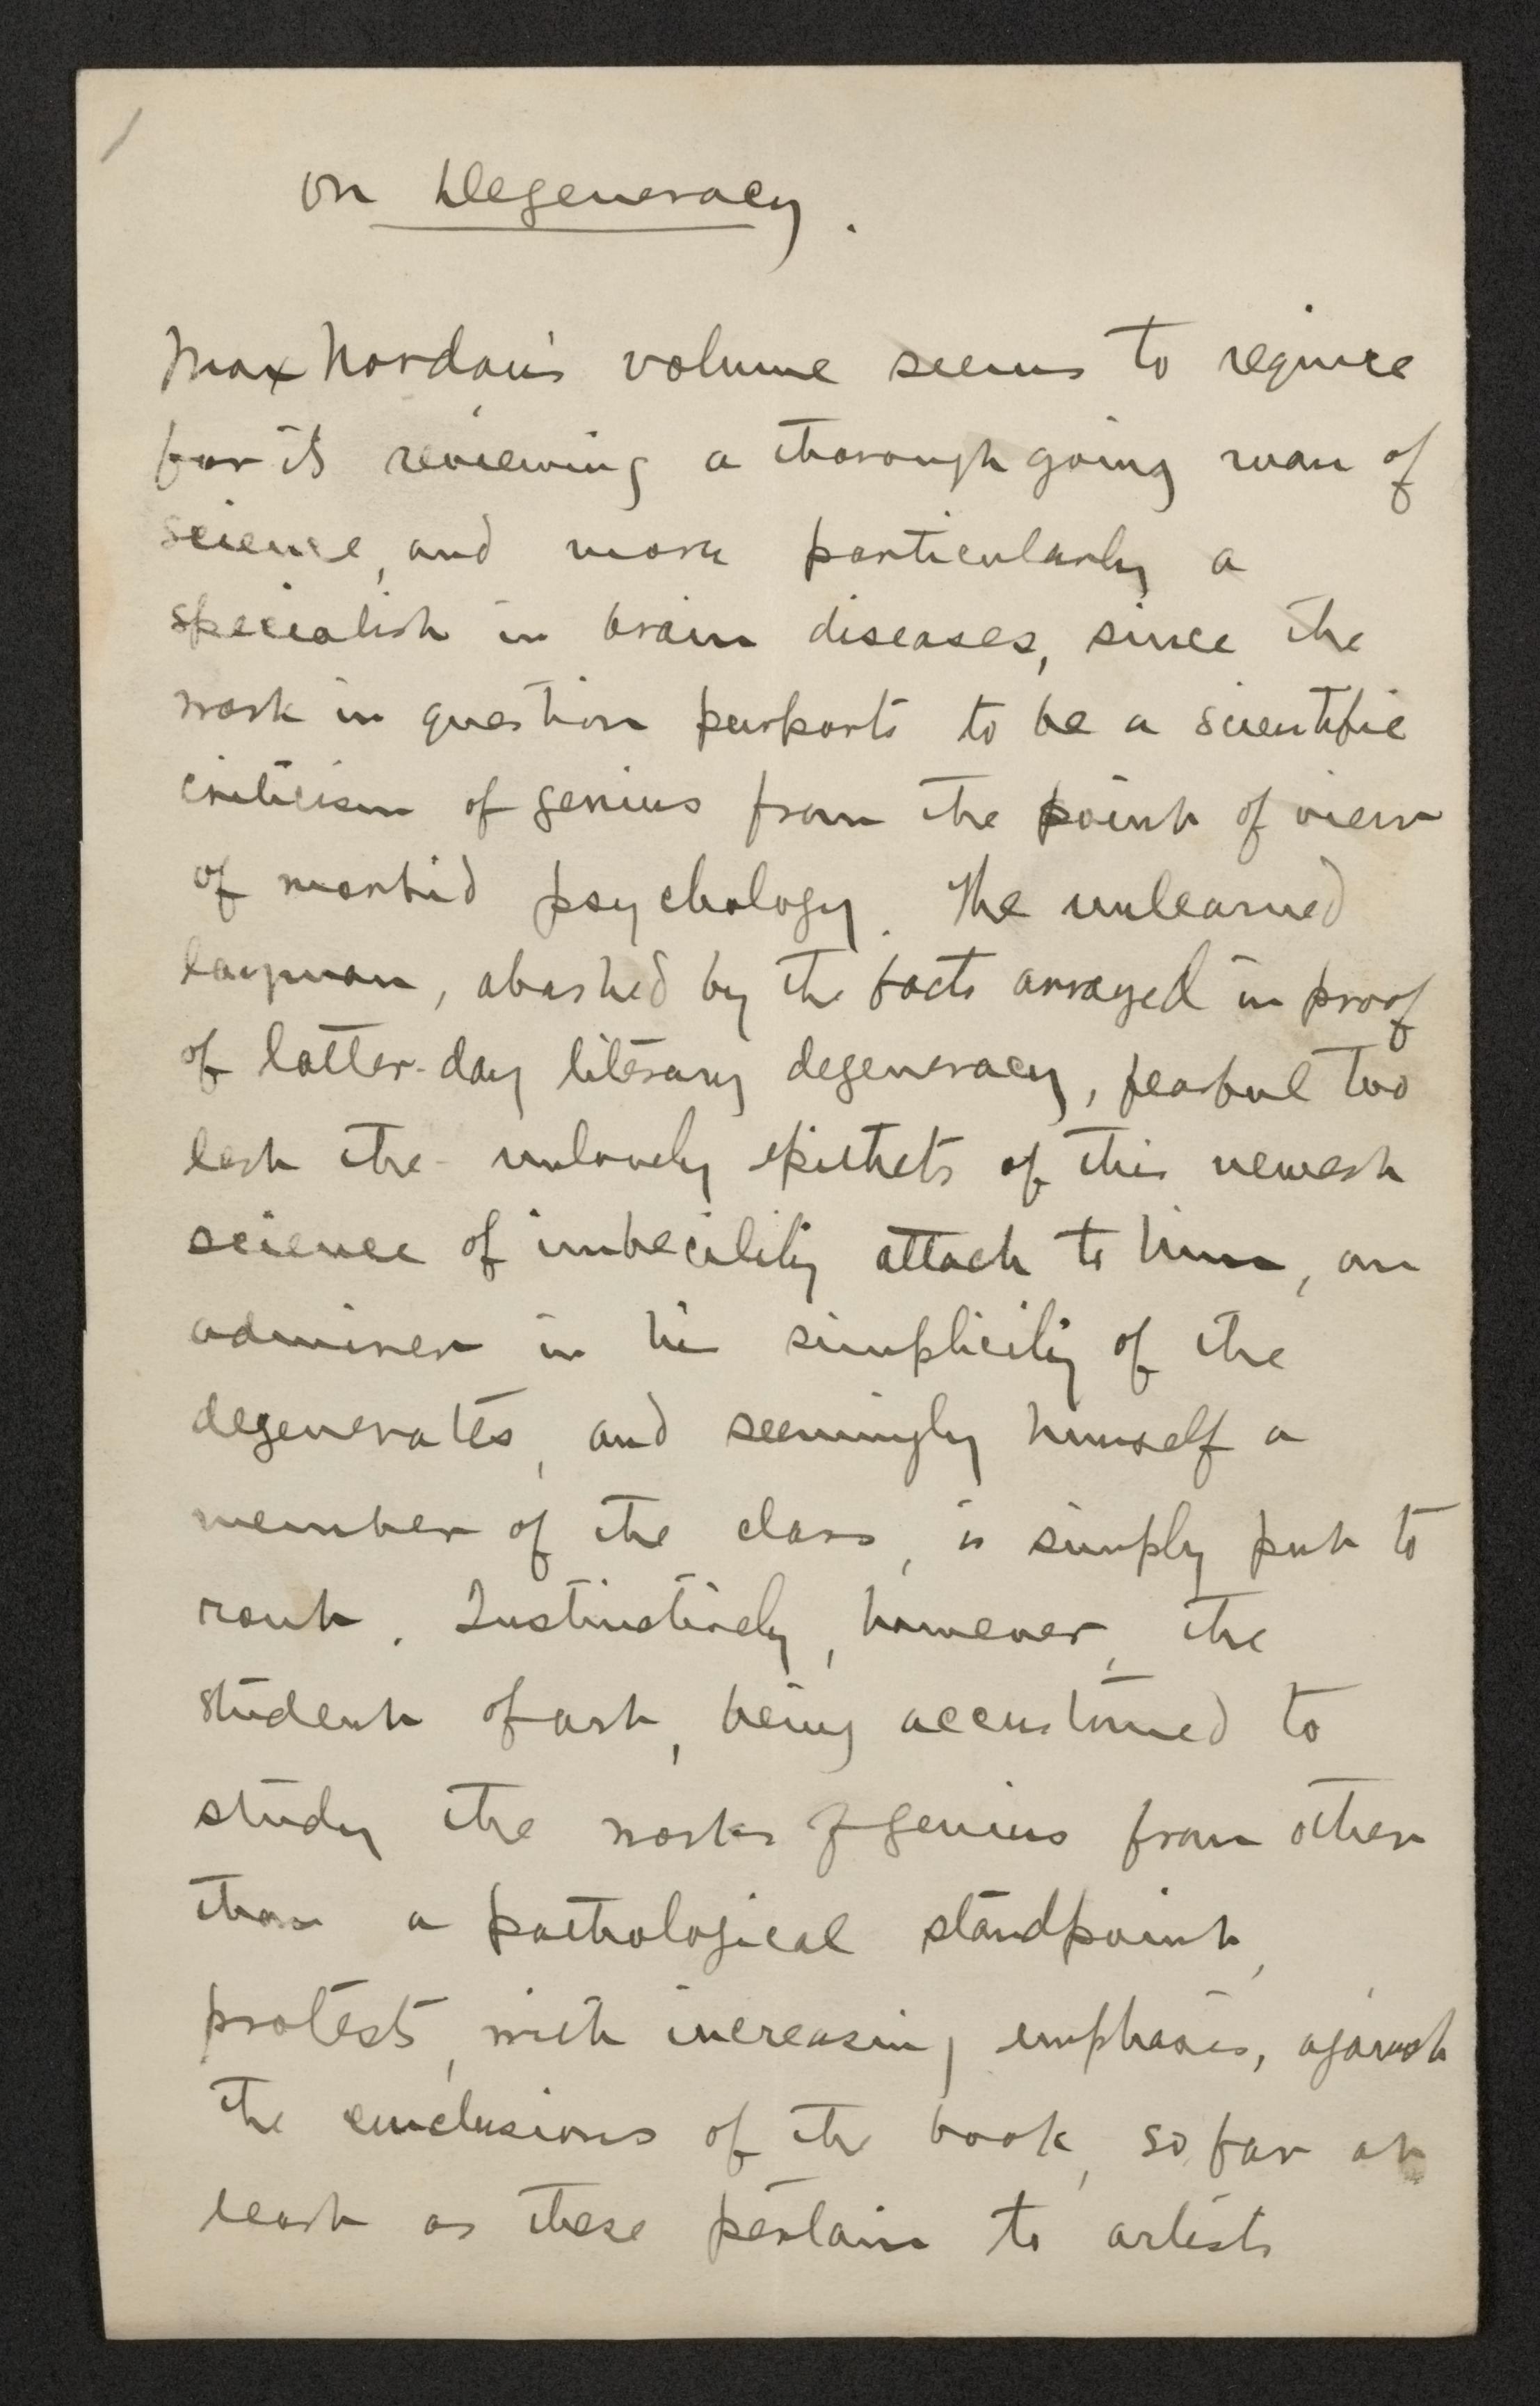 On Degeneracy.
Max Nordau's volume seems to require
for its reviewing a thorough going man of
science, and more particularly a
specialist in brain diseases, since the
work in question purports to be a scientific
criticism of genius from the point of view
of morbid psychology. The unlearned
layman, abashed by the facts arrayed in proof
of latter-day literary degeneracy, fearful too
lest the unlovely epithets of this newest
science of imbecility attach to him, an
admirer in his simplicity of the
degenerates, and seemingly himself a
member of the class, is simply put to
rout. Instinctively, however, the
student of art, being accustomed to
study the works of genius from other
than a pathological standpoint,
protests, with increasing emphasis, against
the conclusions of the book, so far at
least as these pertain to artists